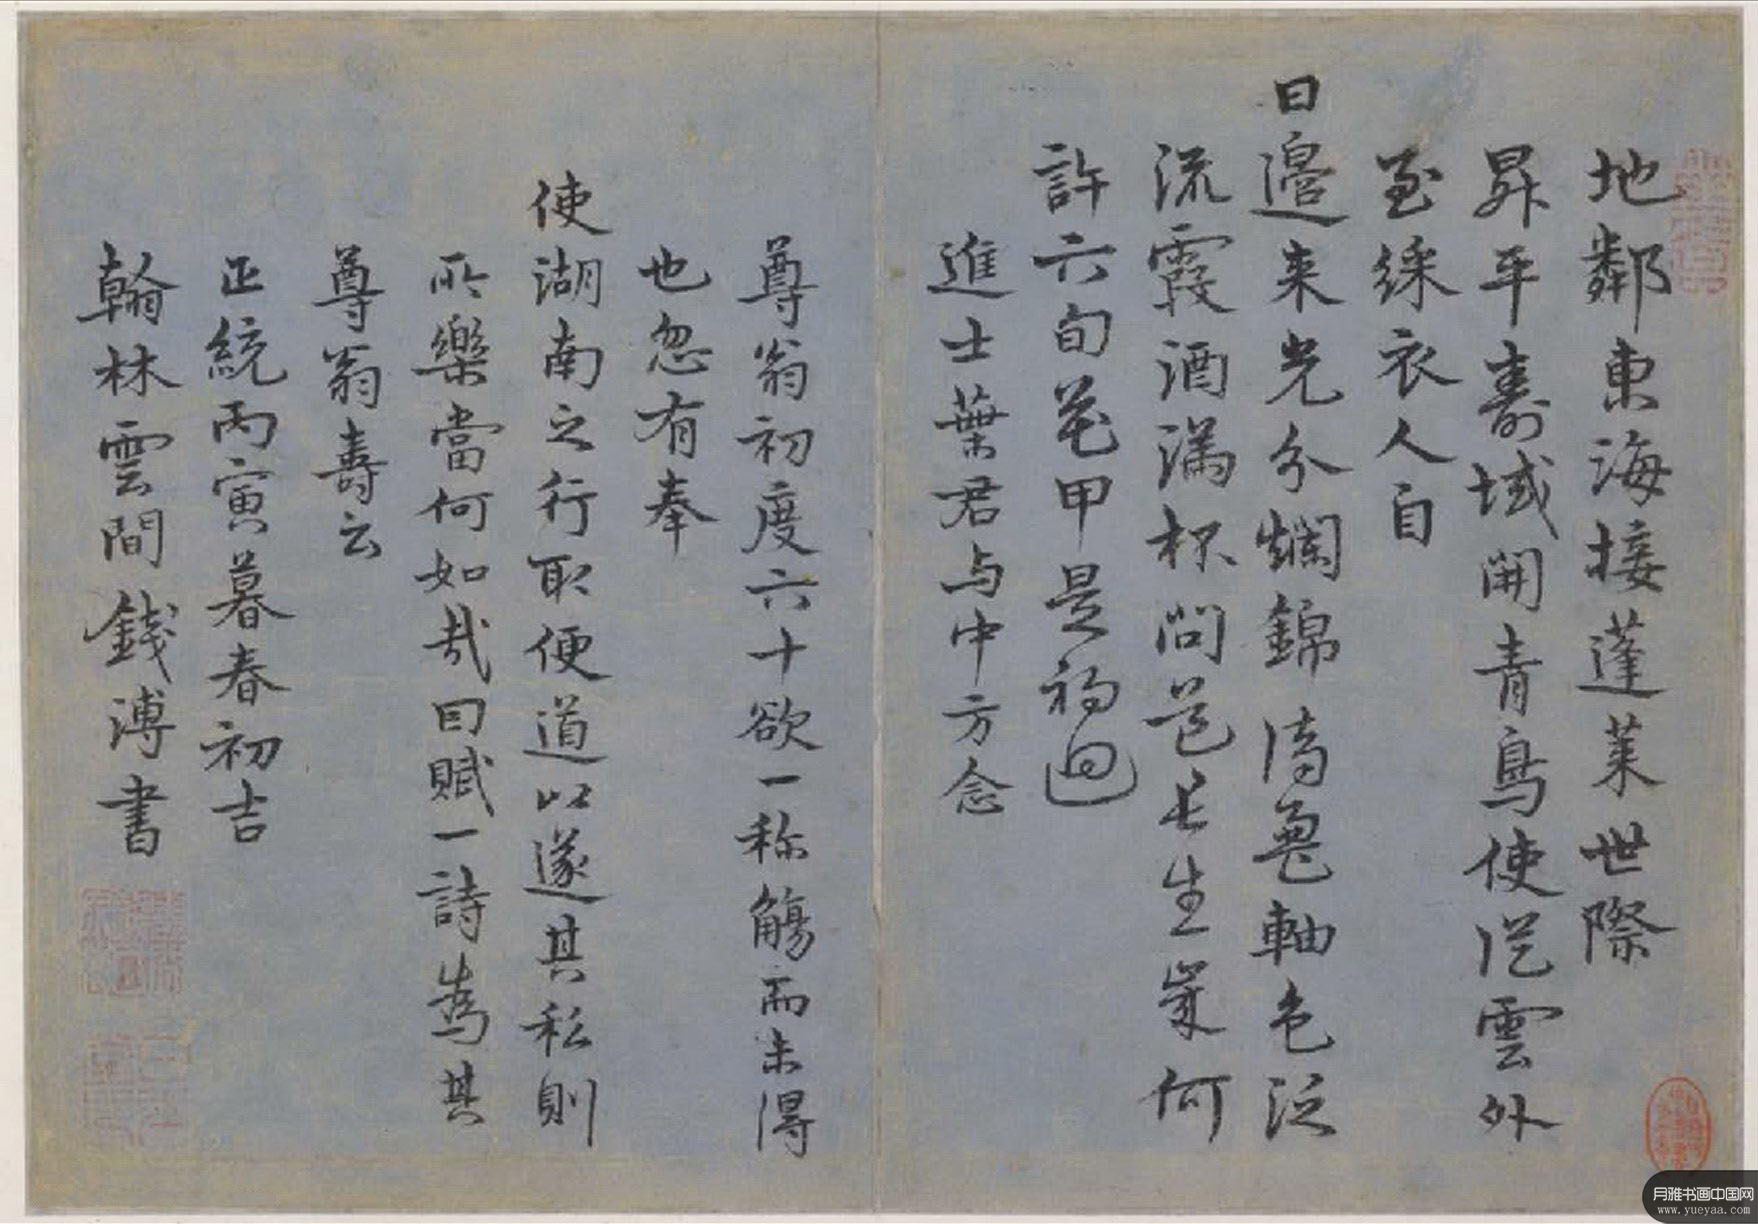 地鄰東海接蓬萊世際
昇平壽域開青鳥使從雲外
至綵衣人自
日邉来光分爛錦濤鳬軸色泛
流霞酒滿杯問荅長生策何
許六旬花甲是初迴
進士葉君与中方念
尊翁初度六十欲一称觴而未得
也忽有奉
使湖南之行取便道以遂其私則
所樂當何如哉曰賦一詩為其
尊翁壽云
正統丙寅暮春初吉
翰林雲間錢溥書
月雅书画中国网
www.yueyaa.com